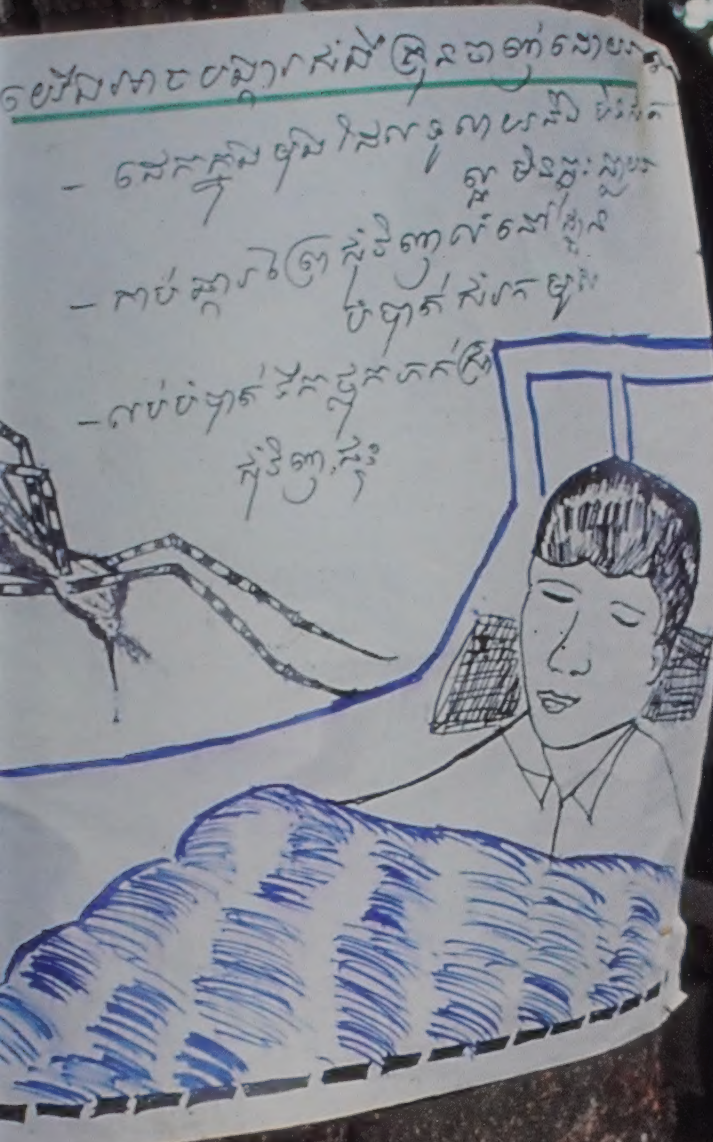 យើងអាចបង្ការជំងឺគ្រុនចាញ់ដោយ
- ដេកក្នុងមុងដែលទូលាយនិង
ល្អ មិនធ្លុះធ្លាយ
- កាប់ឆ្ការព្រៃជុំវិញលំនៅដ្ឋាន
បំបាត់ជំរកមូស
- លប់បំបាត់ទឹកថ្លុកកក់ស្រះ
ជុំវិញផ្ទះ